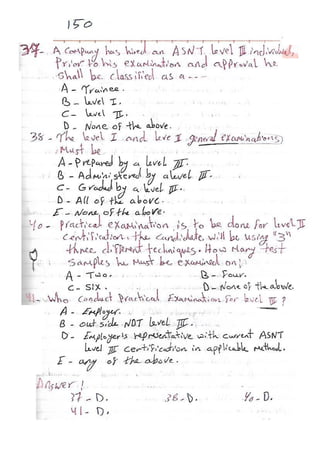 150
37- A Company has hired an ASNT level III individual,
Prior to his examination and approval he
Shall be classified as a ---
A - Trainee.
B - level I.
C - level II.
D - None of the above.
38 - The level I and leve I general examinations,
Must be
A - Prepared by a level III.
B - Administered by a level III.
C - Graded by a level III.
D - All of the above.
E - None of the above.
40 - Practical examination is to be done for level II
Certification. the candidate will be using "3"
three different techniques. How Many test
Samples he Must be examined on!
A - Two. B - Four.
C - SIX. D - None of above.
41 - Who conduct Practical Examination for level III ?
A - Employer.
B - out side NDT level III.
D - Employer's representative with current ASNT
level III certification in applicable Method.
E - any of the above.
Answer!
37 - D. 38 - D. 40 - D.
41 - D.